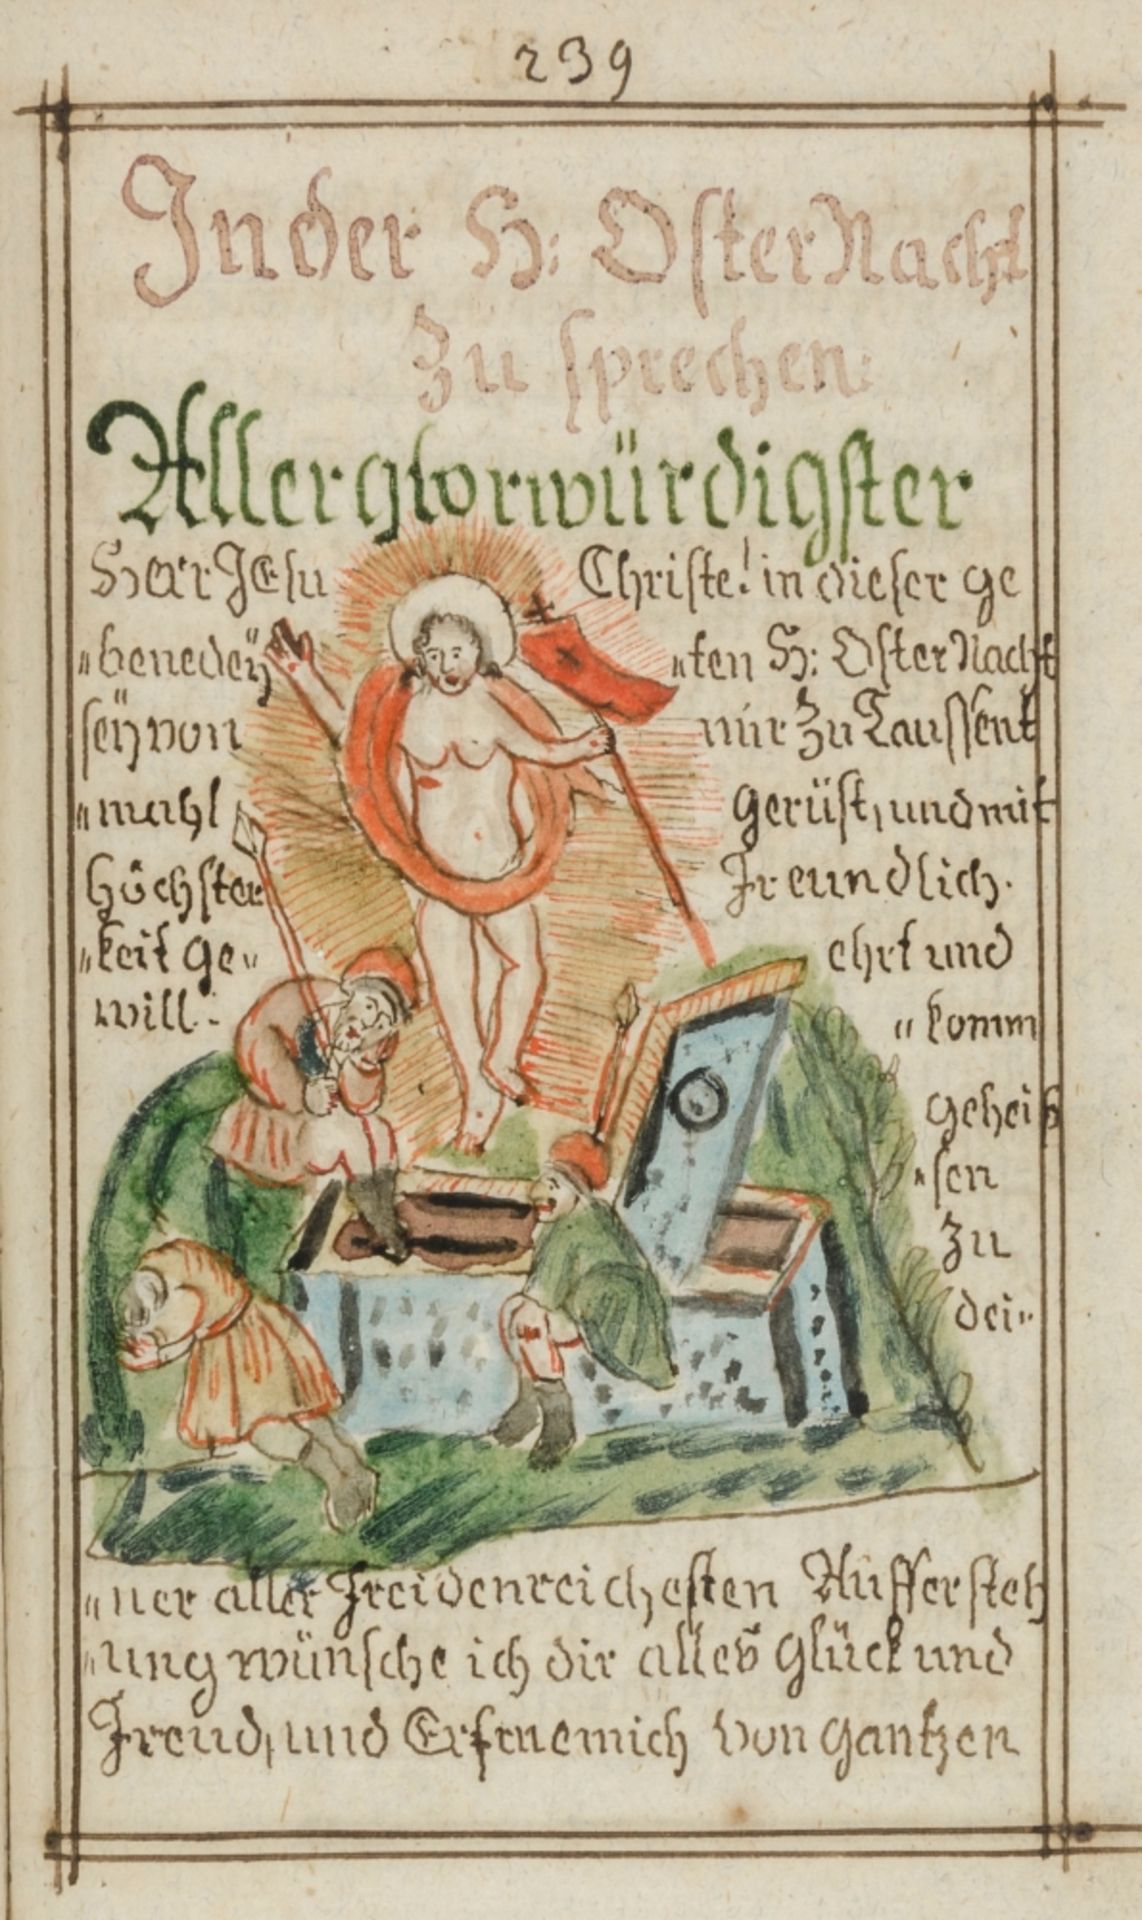 239
In der H: Oster Nacht
Zu sprechen:
Allerglorwürdigster
Herr JEsu Christe! in dieser ge
„benedeÿ „ten H: Oster Nacht
seÿ von mir Zu Taussent
„mahl gerüst, und mit
höchster Freundlich.
„keit ge„ ehrt und
will: „komm
geheis
„sen
zu
dei„
„ner aller Freidenreichesten Aufferste͏h
„ung wünsche ich dir alles Glück und
Freud, und Erfrue mich von gantzen